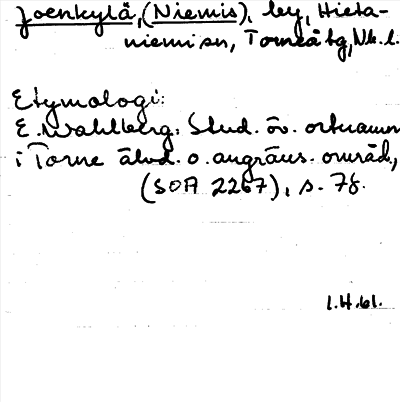 Joenkylä, (Niemis), by, Hieta-
niemi sn, Torneå tg, Nb. l.
Etymologi:
E. Wahlberg: Stud. öv. ortnamn
i Torne älvd. o. angräns. områd.,
(SOA 2267), s. 78.
1.4.61.